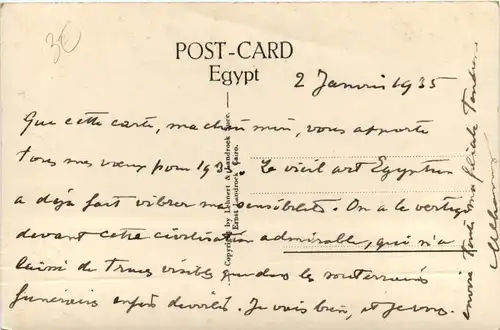 3€
POST-CARD
Egypt
2 Janvier 1935
Que cette carte, ma vous apporte
tous mes vœux pour 1935. Le vieil art Egyptien
a déjà fait vibrer ma sensibilité. On a le vertige
devant cette civilisation admirable, qui n'a
laissé de traces visibles que dans les souterrains
funéraires enfin dévoilés. Je vais bien, et je vous
envoie toute ma tendresse
Copyright by Lehnert & Landrock Succ.
Ernst Landrock, Cairo.